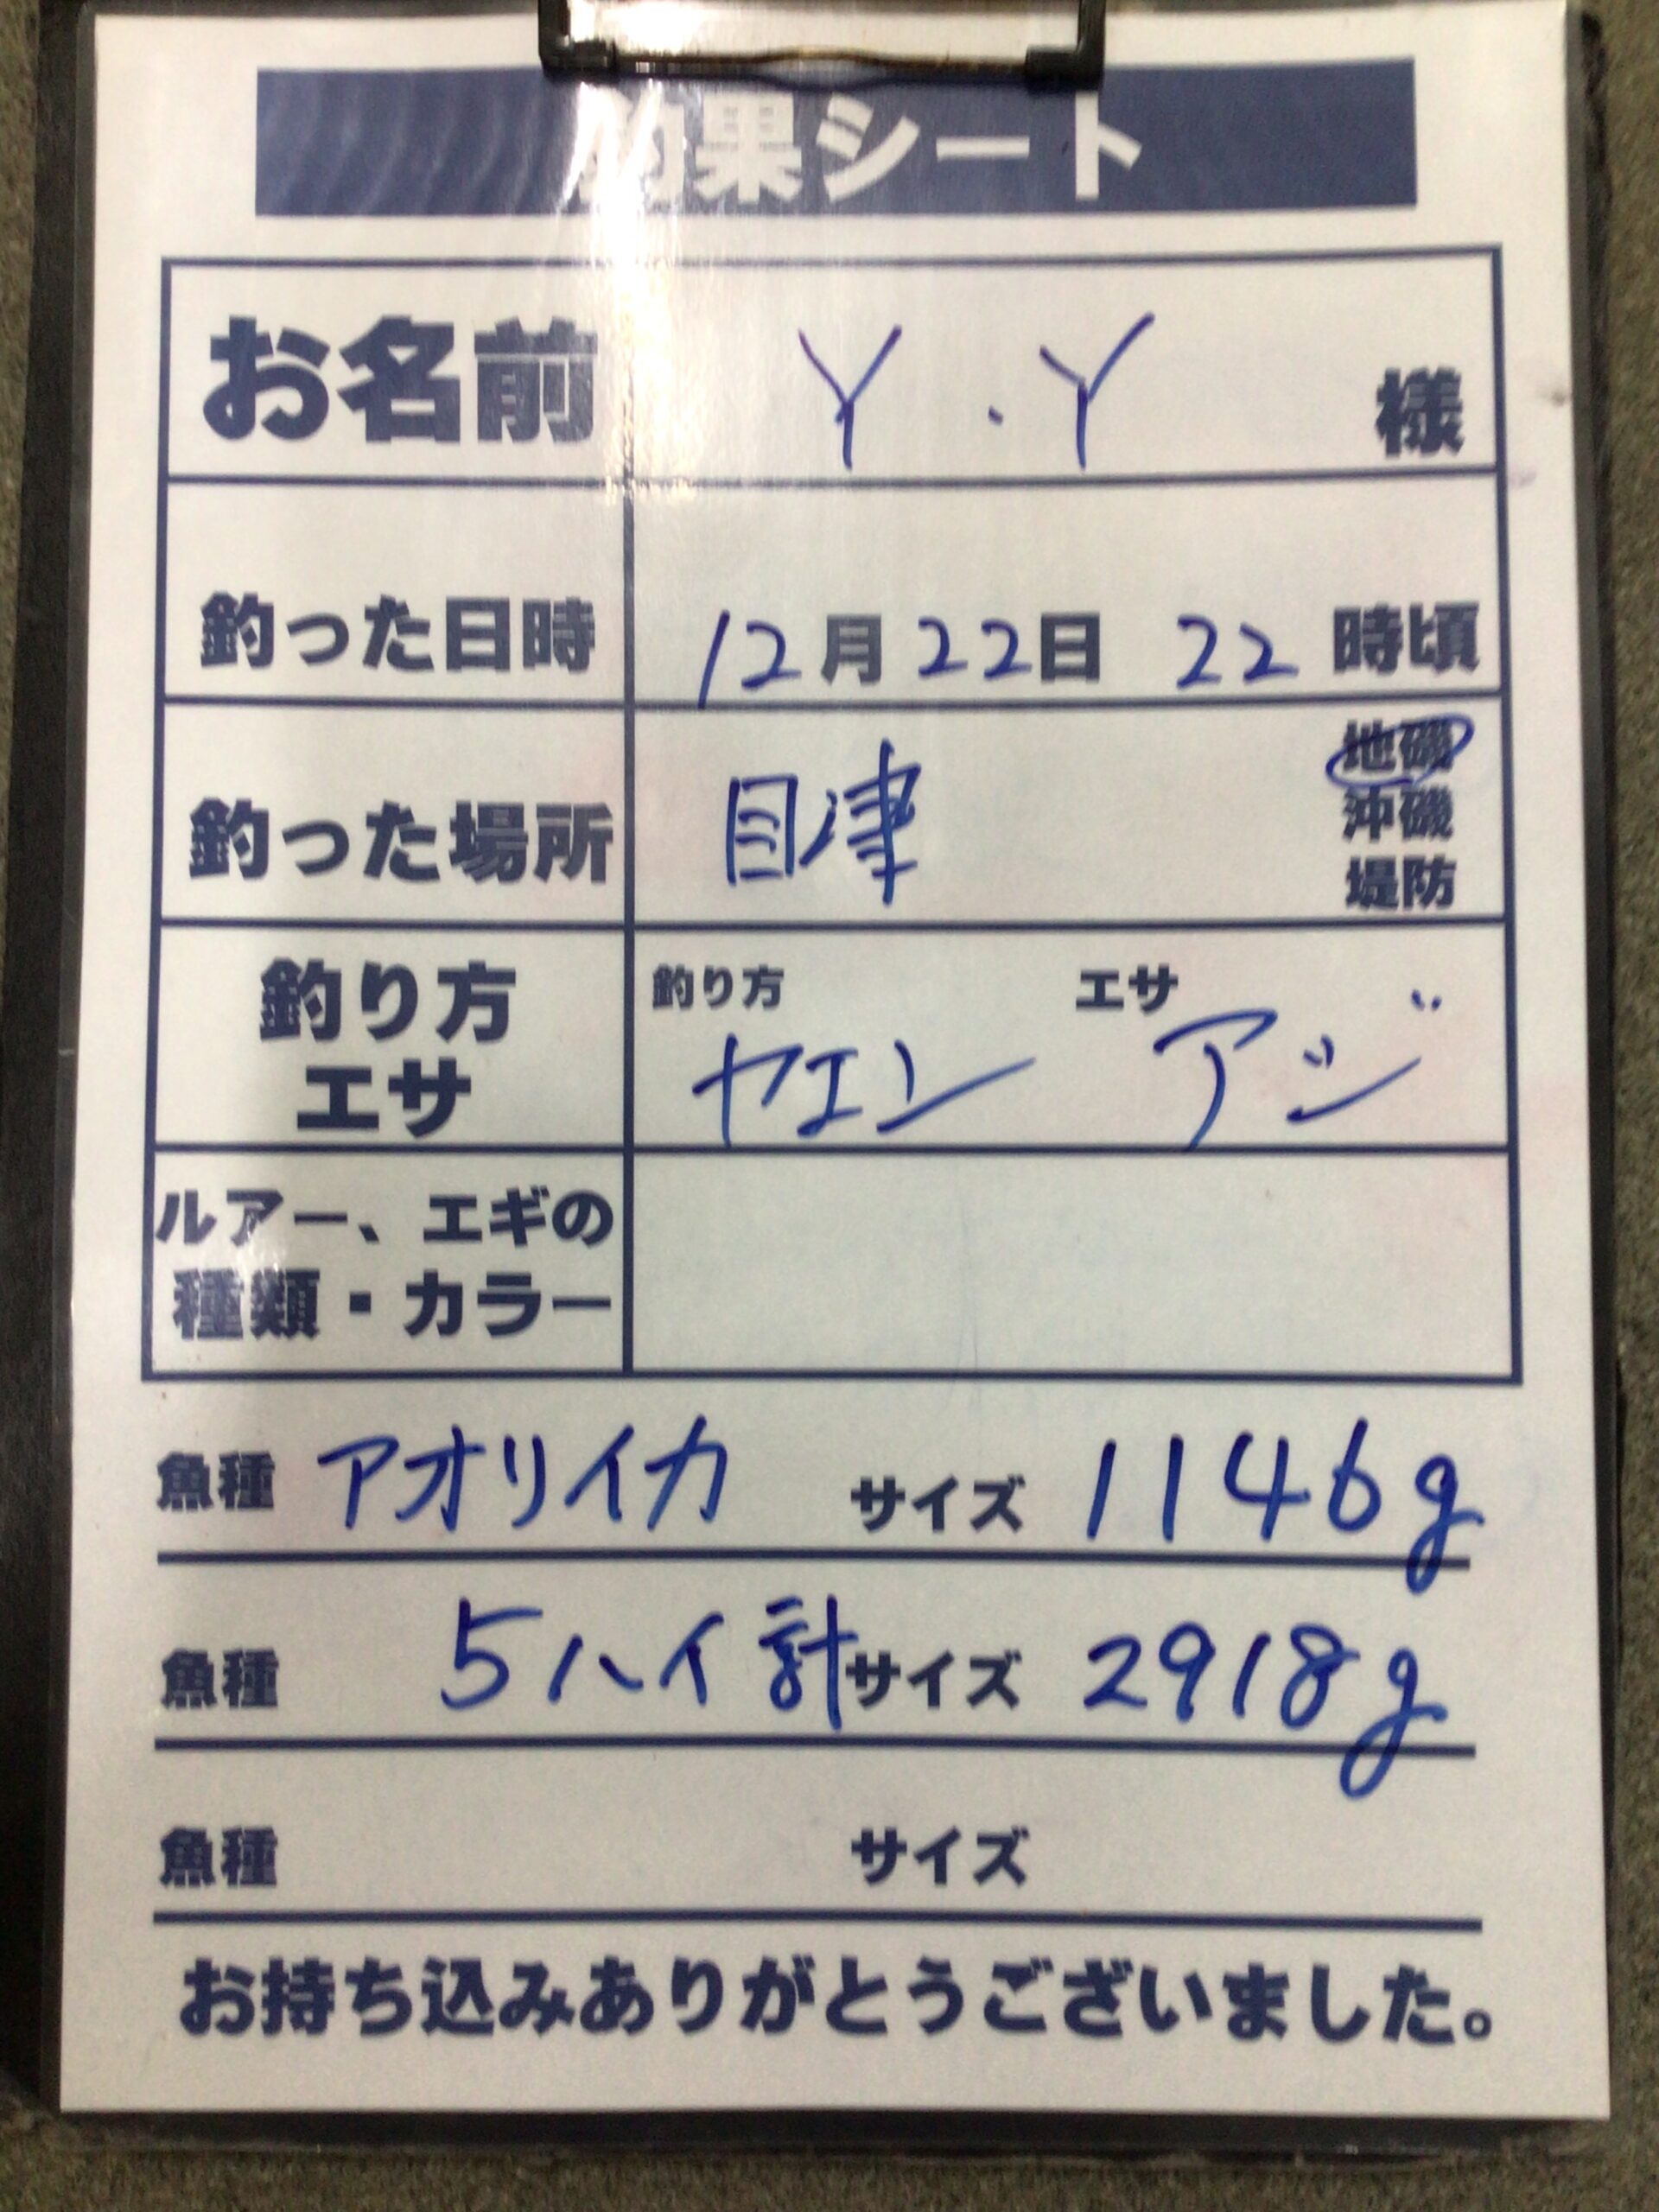 釣果シート
お名前 Y.Y 様
釣った日時 12月22日 22時頃
釣った場所 目津 地磯
沖磯
堤防
釣り方 エサ
釣り方 ヤエン エサ アジ
ルアー、エギの
種類・カラー
魚種 アオリイカ サイズ 1146g
魚種 5ハイ計 サイズ 2918g
魚種 サイズ
お持ち込みありがとうございました。